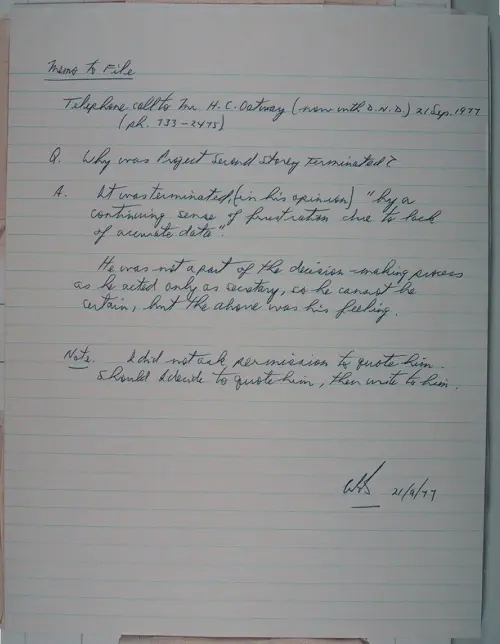 Memo to File
Telephone call to Mr. H. C. Oatway (now with D.N.D.) 21 Sep. 1977
(ph. 733-2475)
Q. Why was Project Second Storey Terminated?
A. It was terminated, (in his opinion) "by a
continuing sense of frustration due to lack
of accurate data".
He was not a part of the decision-making process
as he acted only as secretary, so he cannot be
certain, but the above was his feeling.
Note. I did not ask permission to quote him.
Should I decide to quote him, then write to him.
21/9/77